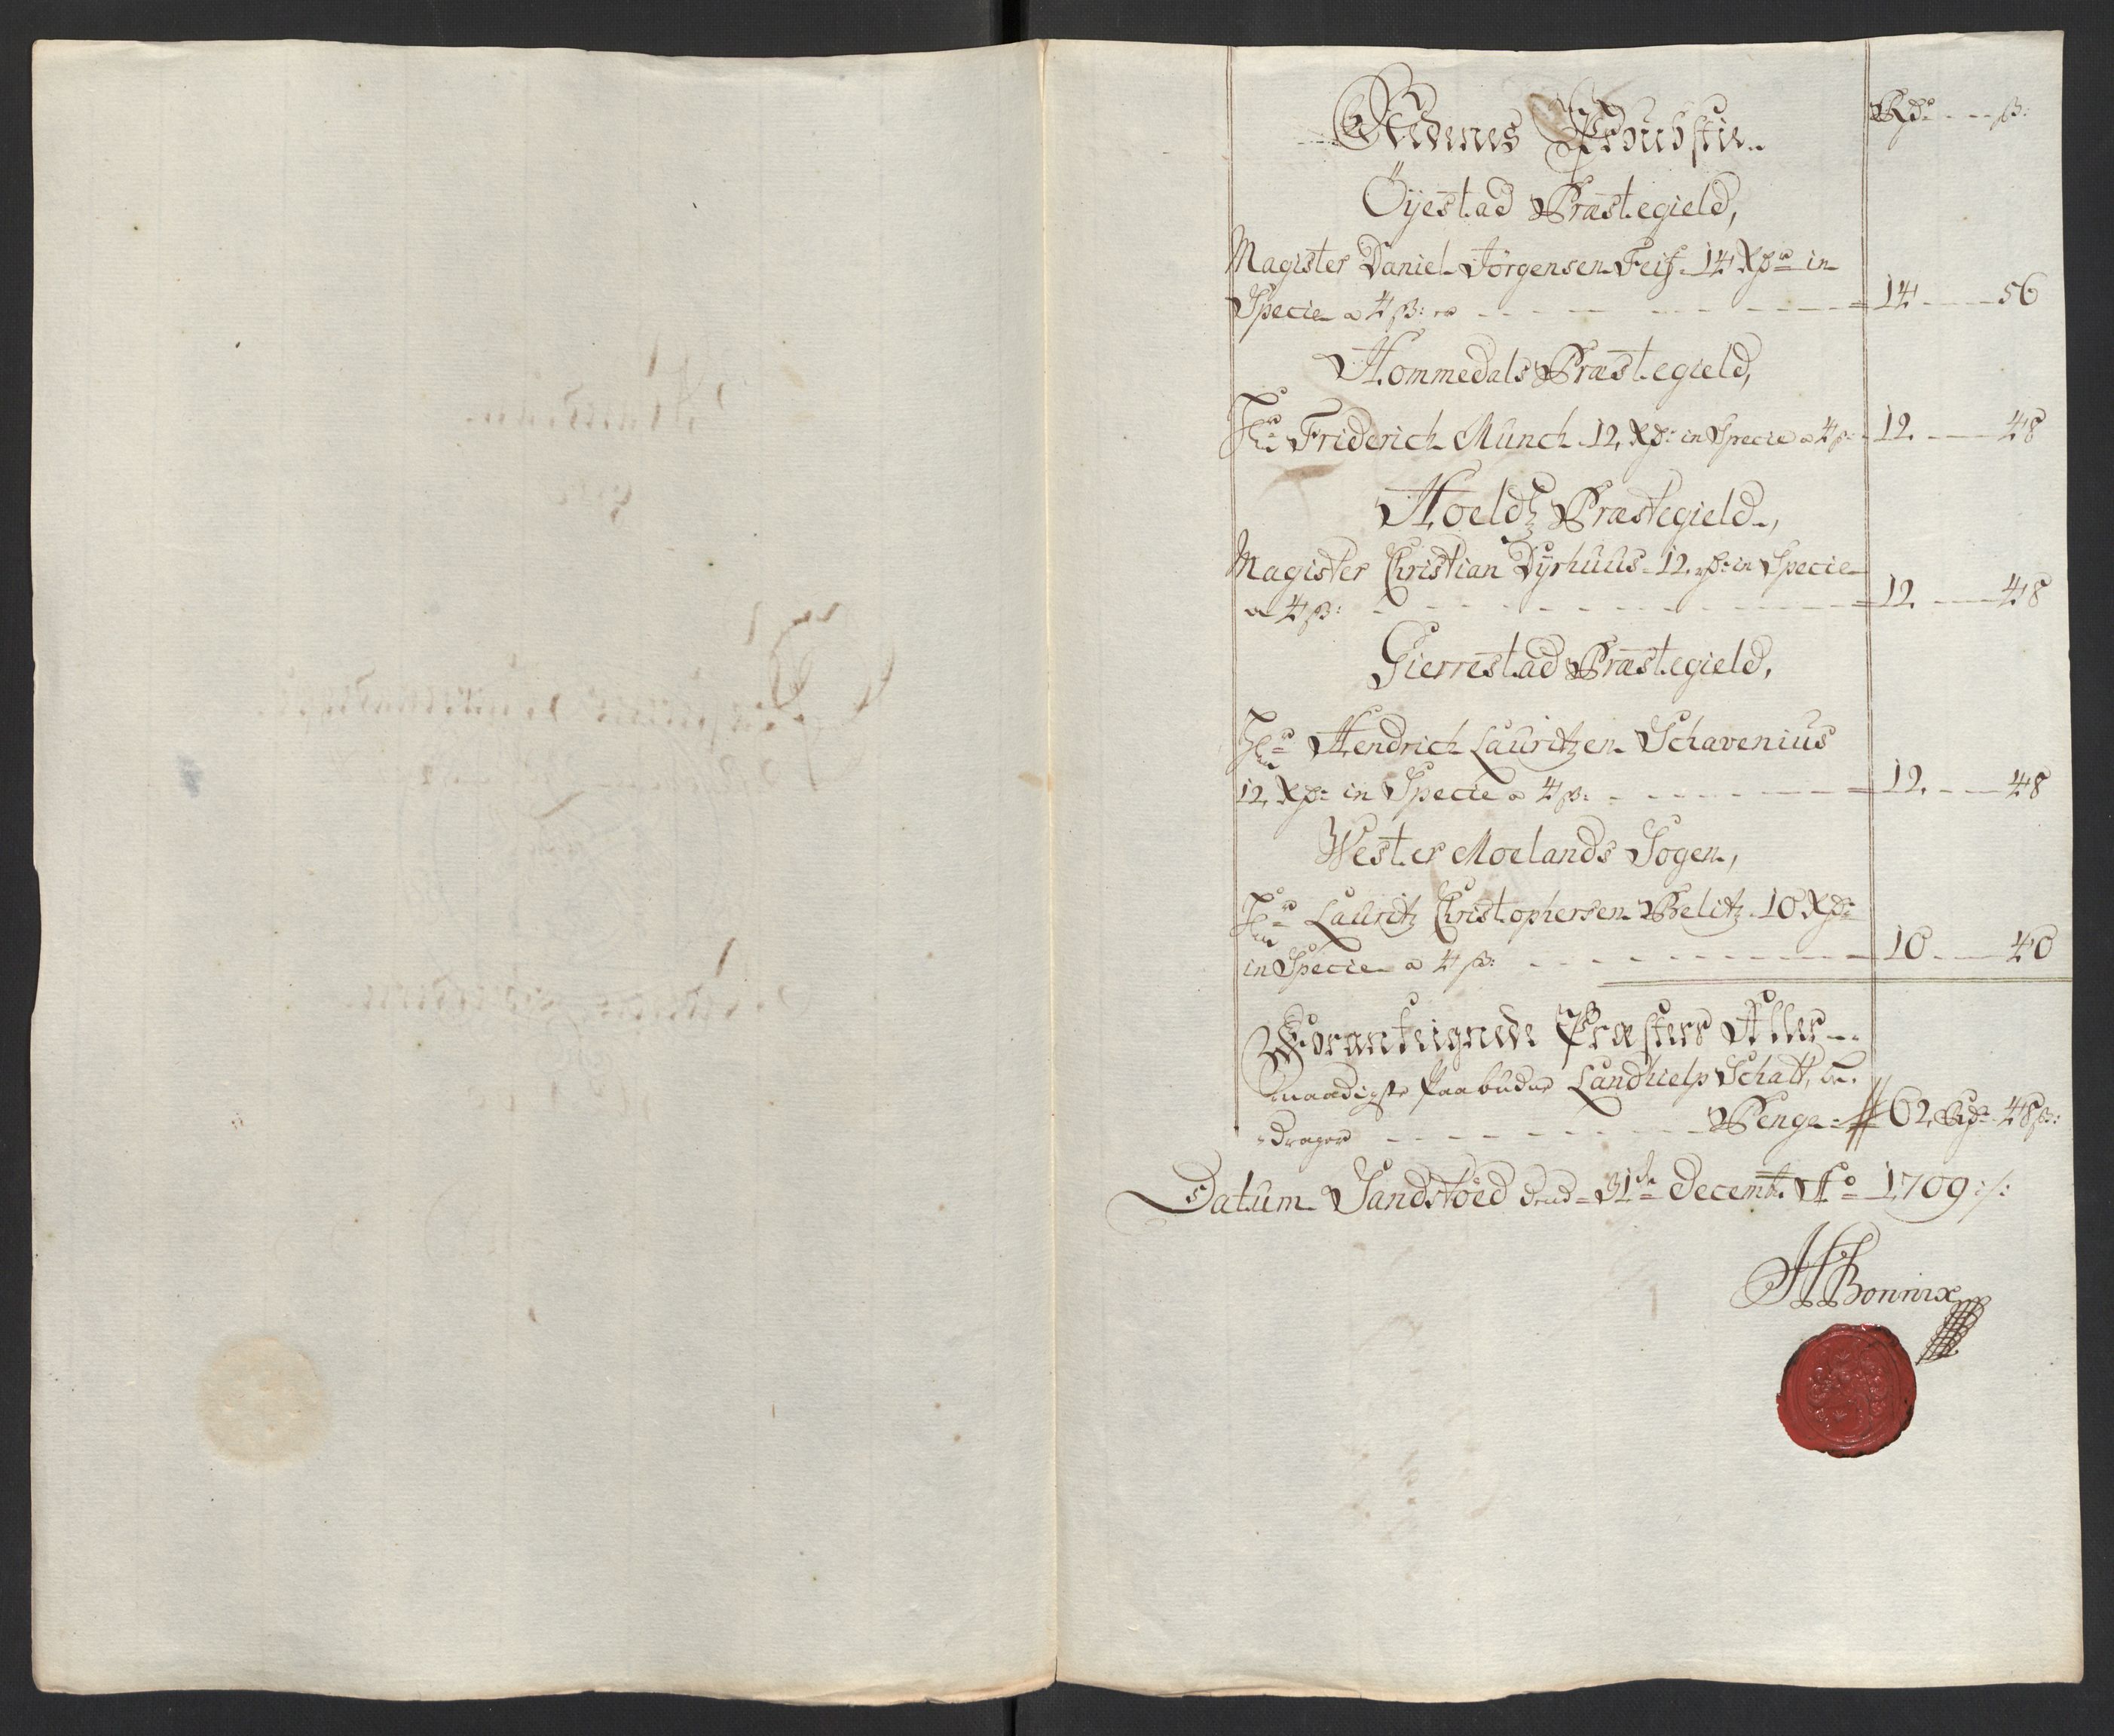 Rd: ß:
Nedenes Proubstie
Öyestad Præstegield,
Magister Daniel Jörgensen Feis 14 Rdr in
Specie a 4 ß: er 14 56
Hommedals Præstegield,
Hr: Friderich Munch 12 Rd: in Specie a 4 ß: 12 48
Hoeldtz Præstegield,
Magister Christian Dyrhuus 12 rd: in Specie
a 4 ß: 12 48
Gierrestad Præstegield,
Hr: Hendrich Lauritzen Schavenius
12 Rd: in Specie a 4 ß: 12 48
Wester Moelands Sogen,
Hr: Lauritz Christophersen Belitz 10 Rd:
in Specie a 4 ß: 10 40
Foranteignede Præsters Aller-
naadigste Paabudne Landhielp Schatt, be-
drager Penge 62 Rd: 48 ß:
Datum Sandstöed dend 31te Decemb. Ao 1709 ./.
HBonnix